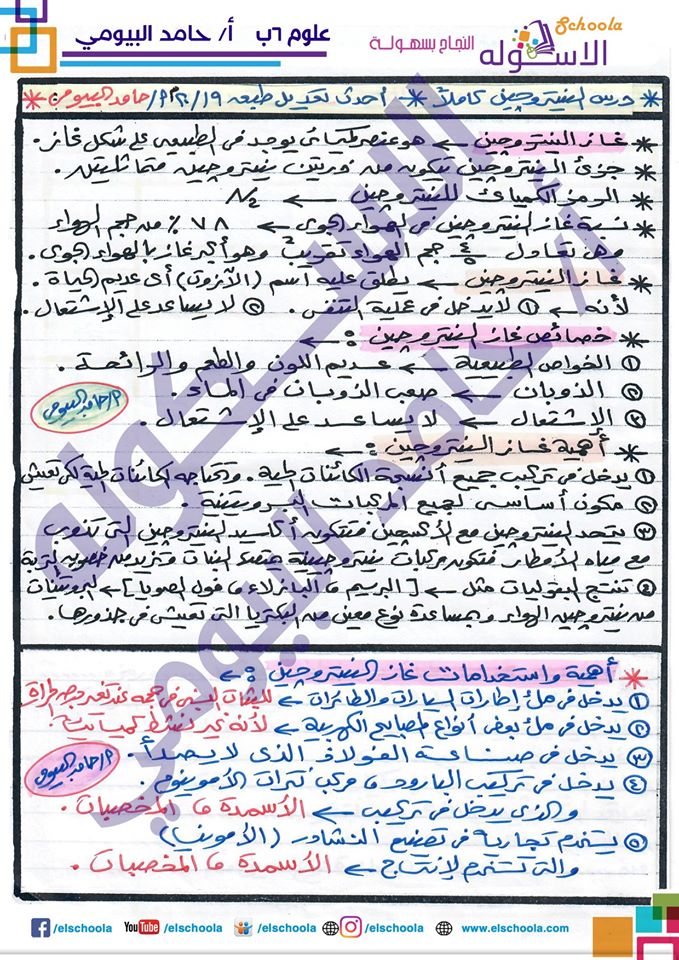 Schoola
الاسكوله
النجاح بسهولة
علوم ٦ب أ/ حامد البيومي
* درس النيتروجين كاملاً * أحدث تعديل طبعه ٢٠١٩/٢٠٢٠ أ/حامد البيومى *
* غاز النيتروجين ← هو عنصر كيميائى يوجد فى الطبيعه على شكل غاز.
* جزئ النيتروجين يتكون من ذرتين نيتروجين متماثلتين.
* الرمز الكميائى للنيتروجين ← N2
* نسبة غاز النيتروجين فى الهواء الجوى ← ٧٨ % من حجم الهواء
وهى تعادل ٤/٥ حجم الهواء تقريبًا وهو أكبر غاز بالهواء الجوى.
* غاز النيتروجين يطلق عليه اسم (الآزوت) أى عديم الحياة.
لأنه ← ① لا يدخل فى عملية التنفس. ② لا يساعد على الإشتعال.
* خصائص غاز النيتروجين :-
① الخواص الطبيعية ← عديم اللون والطعم والرائحة.
② الذوبان ← صعب الذوبان فى الماء.
③ الإشتعال ← لا يساعد على الإشتعال.
أ/حامد البيومى
* أهمية غاز النيتروجين :-
① يدخل فى تركيب جميع أنسجة الكائنات الحية. وتحتاجه الكائنات الحية لكى تعيش
② مكون أساسى لجميع المركبات البروتينية.
③ يتحد النيتروجين مع الأكسجين فتتكون أكاسيد النيتروجين التى تذوب
مع مياه الأمطار فتتكون مركبات نيتروجينية يمتصها النبات وتزيد من خصوبة التربة
④ تنتج البقوليات مثل ← [البرسيم، البازلاء، فول الصويا] ← البروتينات
من نيتروجين الهواء وبمساعدة نوع معين من البكتريا التى تعيش فى جذورها.
* أهمية واستخدامات غاز النيتروجين :-
① يدخل فى ملئ إطارات السيارات والطائرات ← للثبات النسبى فى حجمه عند تغير درجه الحرارة
② يدخل فى ملئ بعض أنواع المصابيح الكهربية ← لأنه غير نشط كميائيًا.
③ يدخل فى صناعة الفولاذ الذى لا يصدأ.
④ يدخل فى تركيب البارود، مركب نترات الأمونيوم.
والذى يدخل فى تركيب ← الأسمدة، المخصبات.
أ/حامد البيومى
⑤ يستخدم تجاريًا فى تصنيع النشادر (الأمونيا)
والتى تستخدم لإنتاج ← الأسمدة، المخصبات.
الاسكوله
أ/ حامد البيومي
/elschoola
YouTube /elschoola
/elschoola
/elschoola
www.elschoola.com